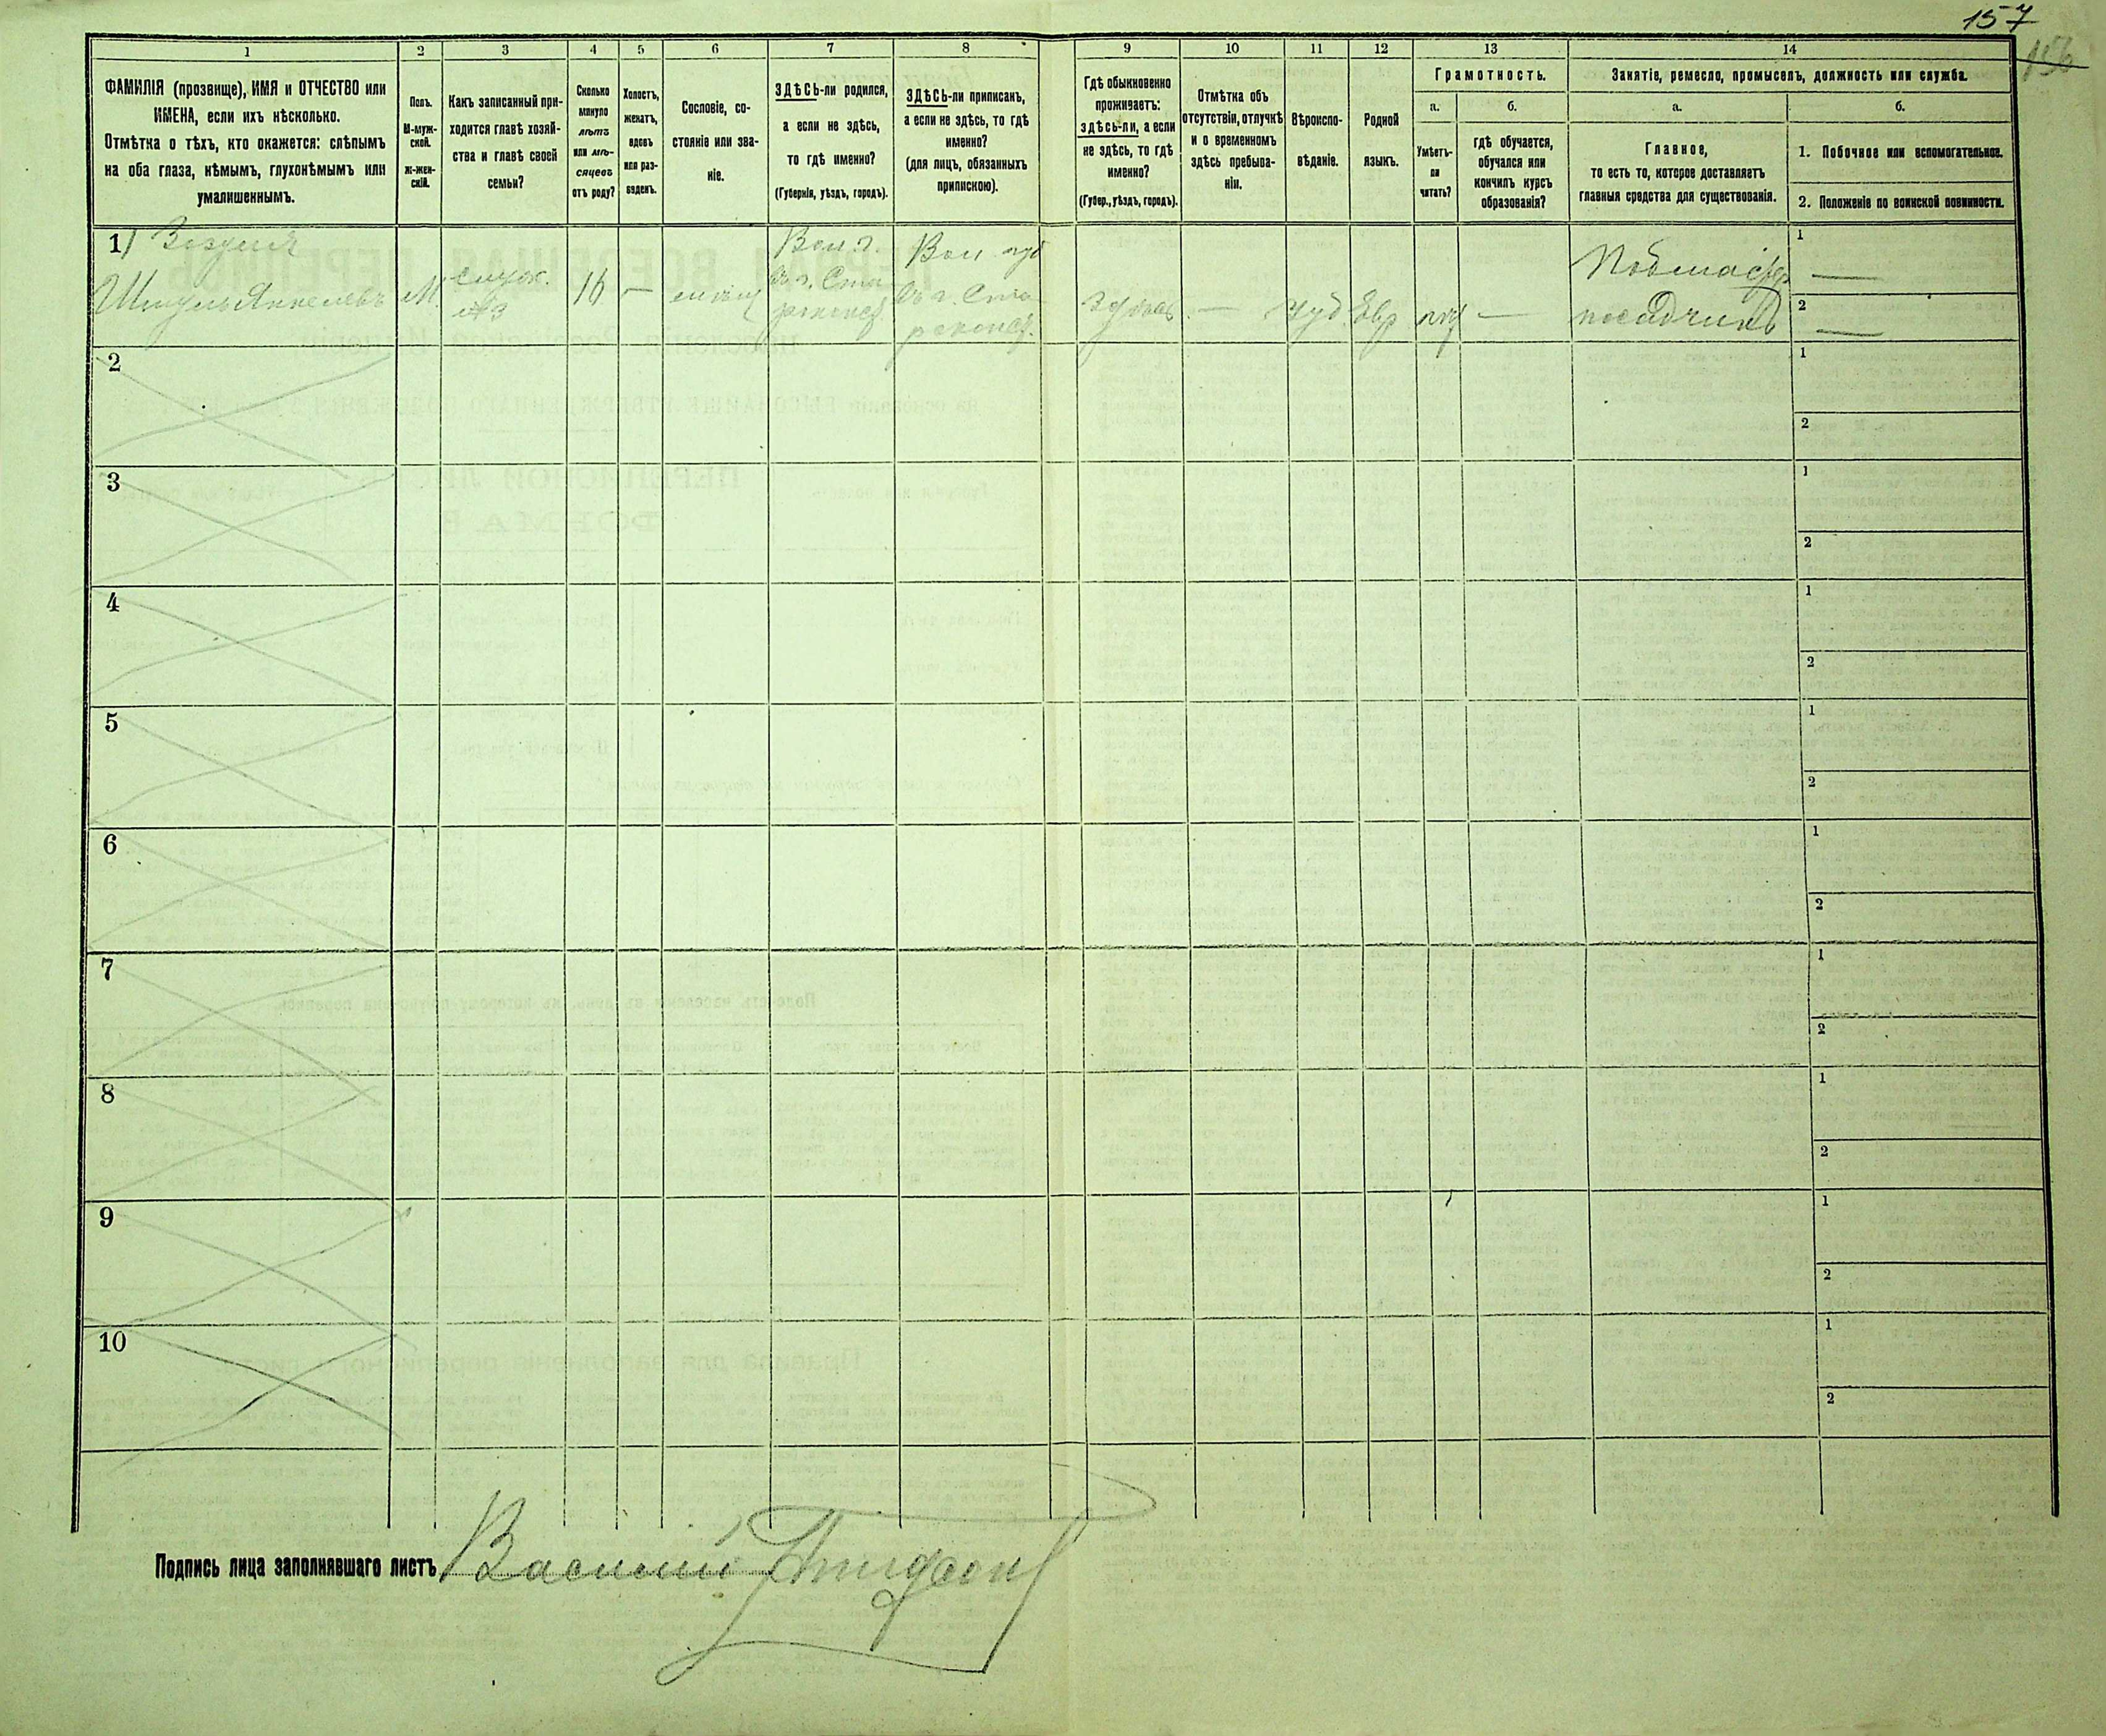 157
156
1 2 3 4 5 6 7 8 9 10 11 12 13 14
ФАМИЛІЯ (прозвище), ИМЯ и ОТЧЕСТВО или
ИМЕНА, если ихъ нѣсколько.
Отмѣтка о тѣхъ, кто окажется: слѣпымъ
на оба глаза, нѣмымъ, глухонѣмымъ или
умалишеннымъ.
Полъ.
М-муж-
ской.
Ж-жен-
скій.
Какъ записанный при-
ходится главѣ хозяй-
ства и главѣ своей
семьи?
Сколько
минуло
лѣтъ
или мѣ-
сяцевъ
отъ роду?
Холостъ,
женатъ,
вдовъ
или раз-
веденъ.
Сословіе, со-
стояніе или зва-
ніе.
ЗДѢСЬ-ли родился,
а если не здѣсь,
то гдѣ именно?
(Губернія, уѣздъ, городъ).
ЗДѢСЬ-ли приписанъ,
а если не здѣсь, то гдѣ
именно?
(для лицъ, обязанныхъ
припискою).
Гдѣ обыкновенно
проживаетъ:
здѣсь-ли, а если
не здѣсь, то гдѣ
именно?
(Губер., уѣздъ, городъ).
Отмѣтка объ
отсутствіи, отлучкѣ
и о временномъ
здѣсь пребыва-
ніи.
Вѣроиспо-
вѣданіе.
Родной
языкъ.
Грамотность.
а.
Умѣетъ-
ли
читать?
б.
гдѣ обучается,
обучался или
кончилъ курсъ
образованія?
Занятіе, ремесло, промыселъ, должность или служба.
а.
Главное,
то есть то, которое доставляетъ
главныя средства для существованія.
б.
1. Побочное или вспомогательное.
2. Положеніе по воинской повинности.
1)
Шмуль Янкелевъ
М.
служ.
16
—
Вол. г.
въ г. Ста
роконст.
Вол. губ
въ г. Ста
роконст.
здѣсь
—
Іуд.
Евр
—
Подмастер
посадчикъ
1 —
2 —
2
1
2
3
1
2
4
1
2
5
1
2
6
1
2
7
1
2
8
1
2
9
1
2
10
1
2
Подпись лица заполнявшаго листъ Василій